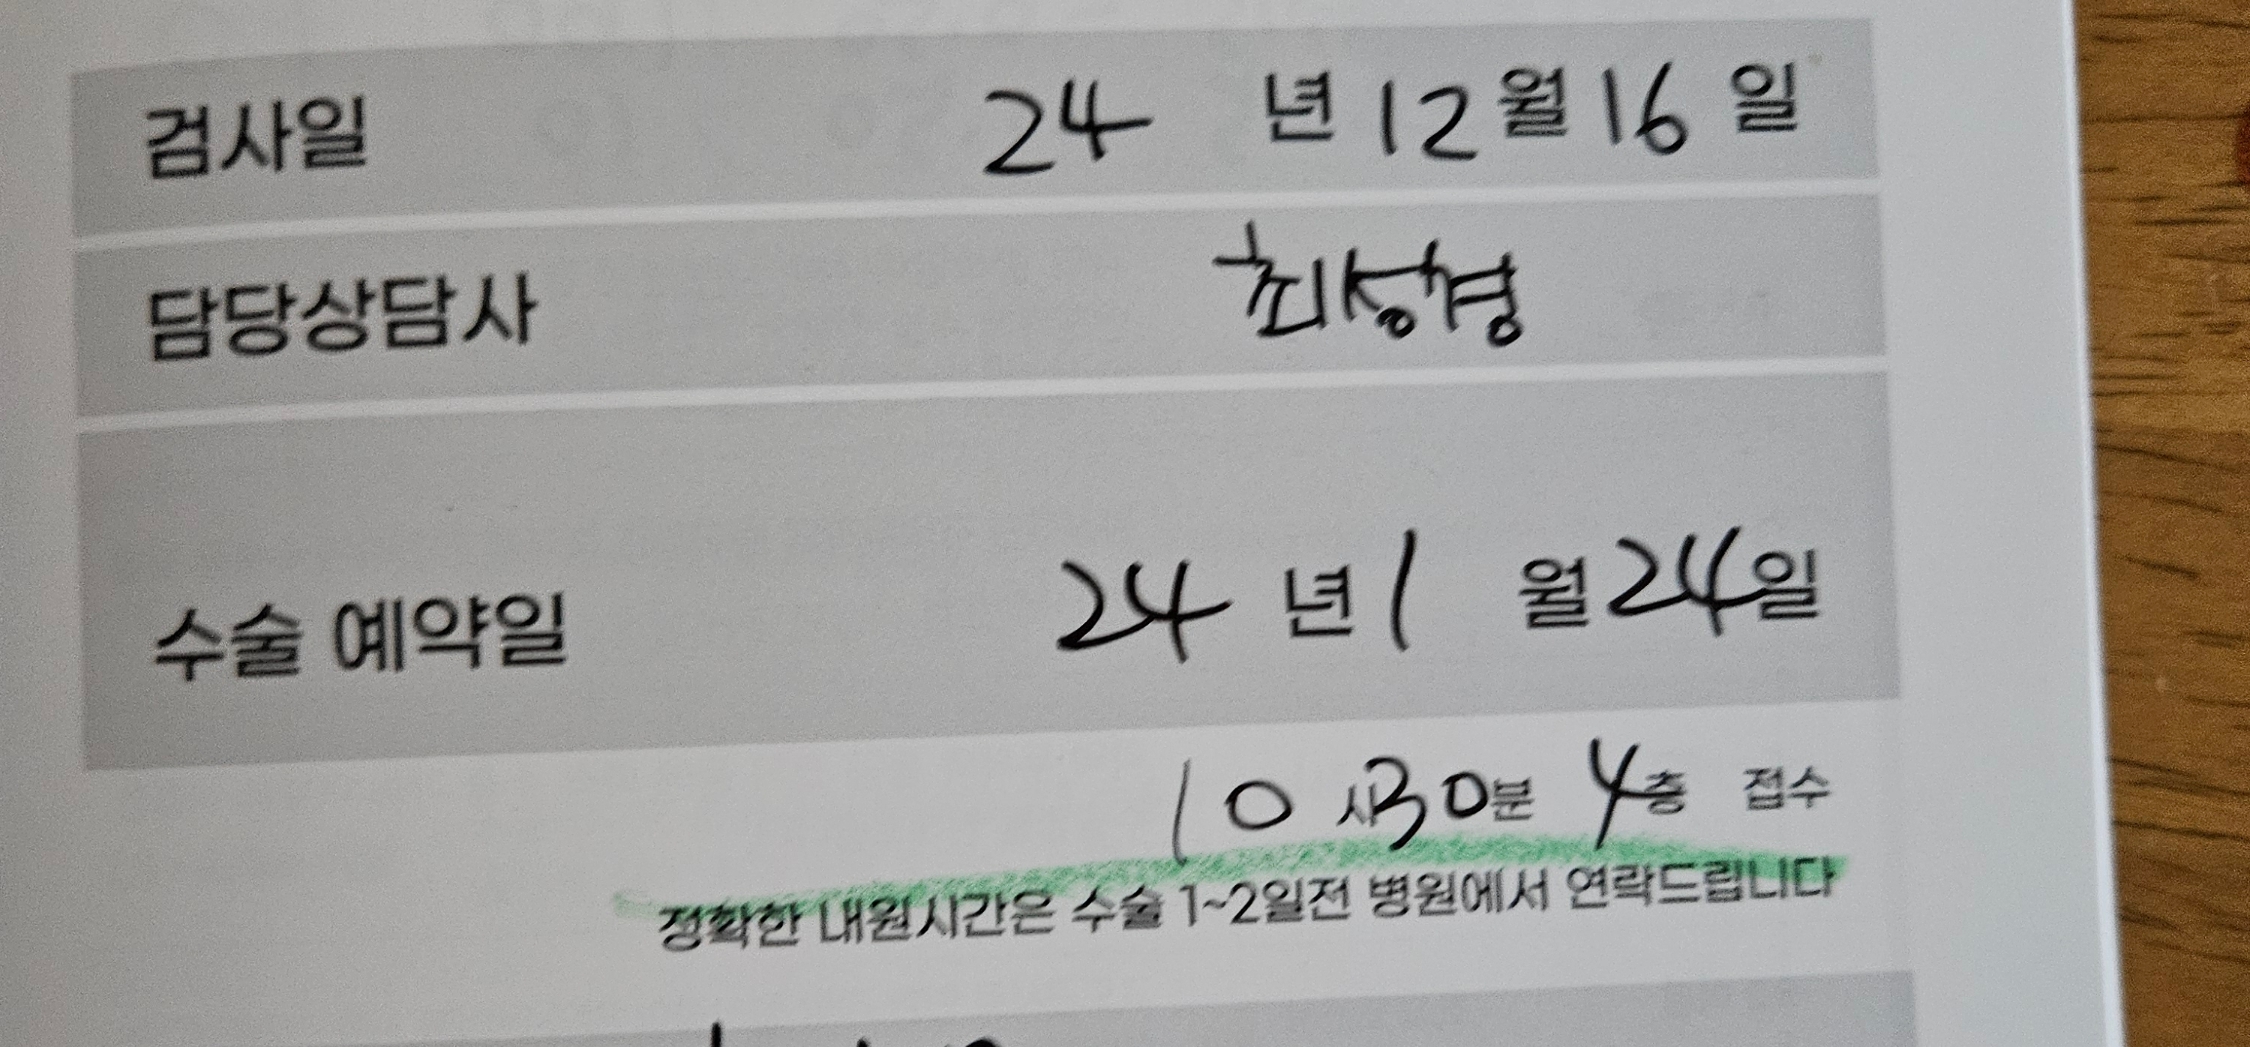 검사일 24 년 12 월 16 일
담당상담사 최성경
수술 예약일 24 년 1 월 24 일
10 시 30 분 4 층 접수
정확한 내원시간은 수술 1~2일전 병원에서 연락드립니다